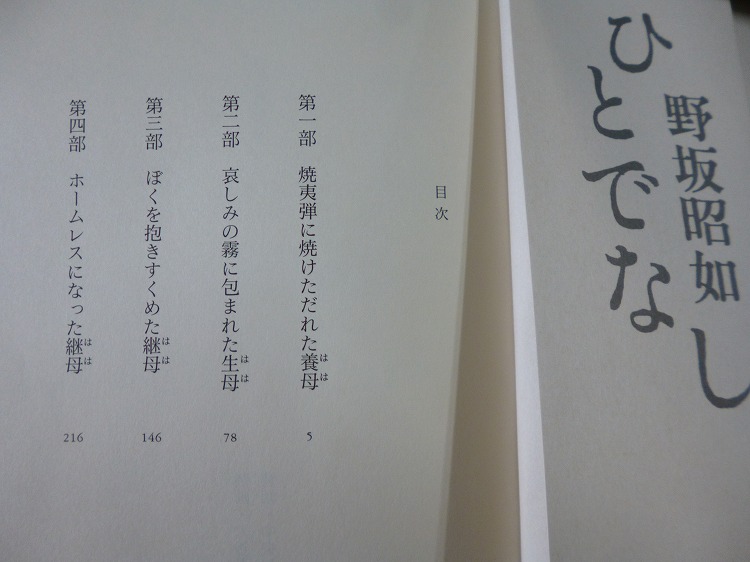 ひとでなし
野坂昭如
目次
第一部 焼夷弾に焼けただれた養母 5
はは
第二部 哀しみの霧に包まれた生母 78
はは
第三部 ぼくを抱きすくめた継母 146
はは
第四部 ホームレスになった継母 216
はは